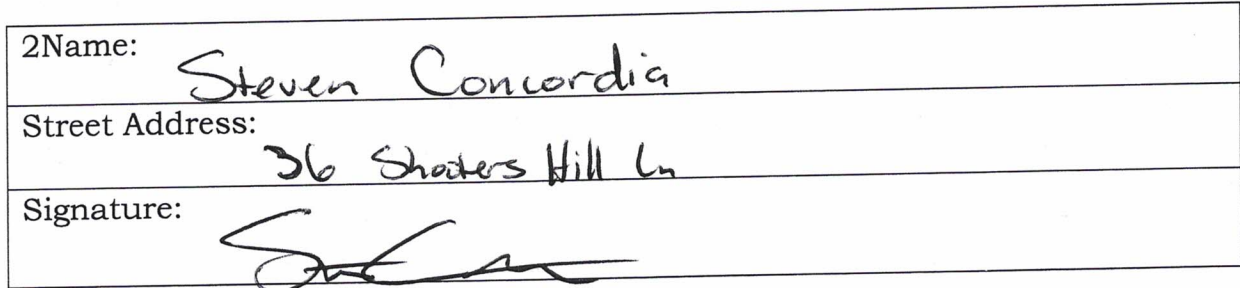 2Name:
Steven Concordia
Street Address:
36 Shooters Hill Ln
Signature: